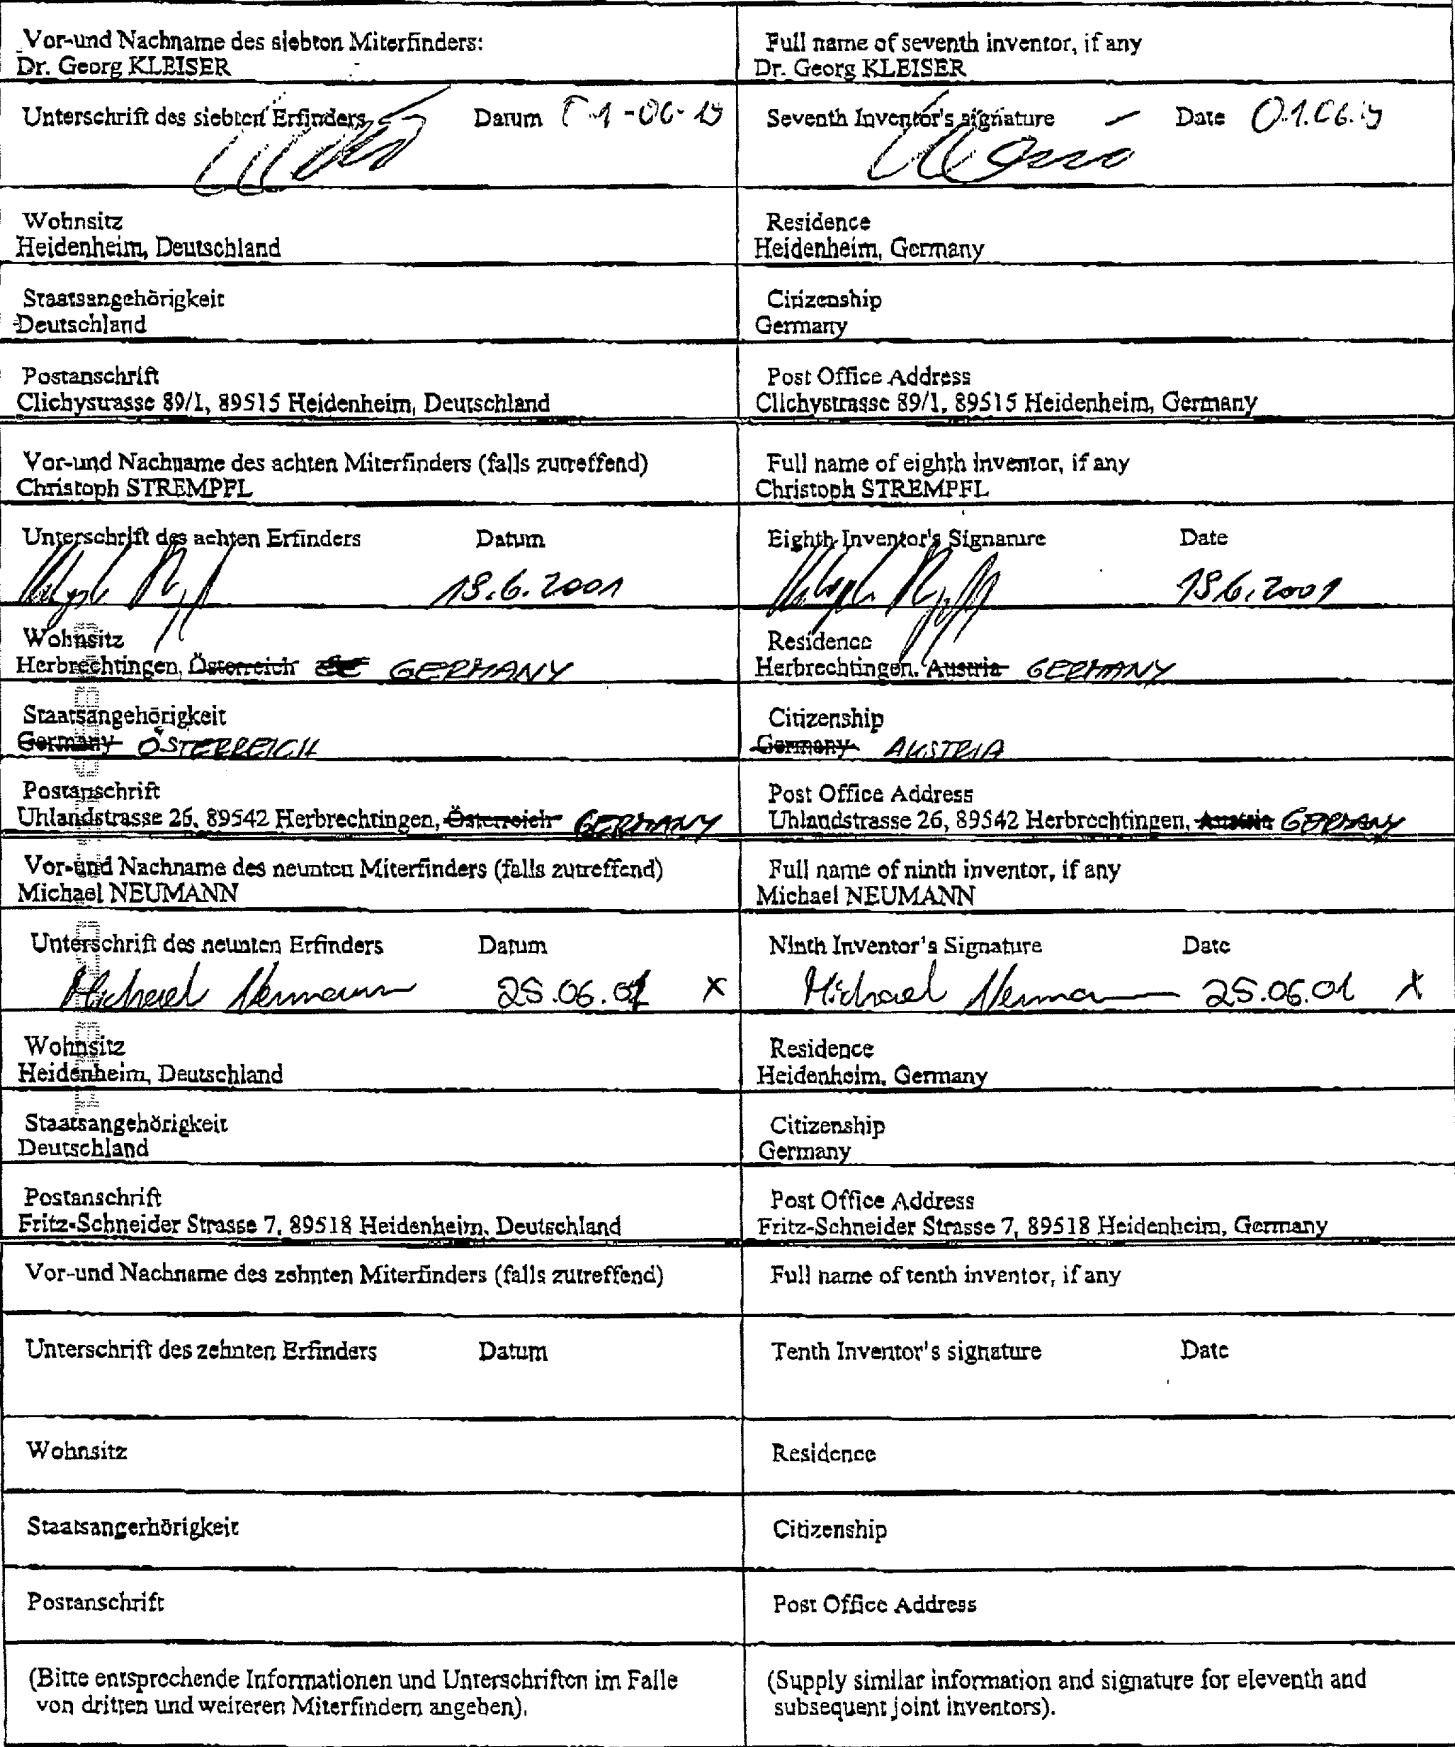 Vor-und Nachname des siebten Miterfinders:
Dr. Georg KLEISER
Full name of seventh inventor, if any
Dr. Georg KLEISER
Unterschrift des siebten Erfinders Datum
Seventh Inventor's signature Date
Wohnsitz
Heidenheim, Deutschland
Residence
Heidenheim, Germany
Staatsangehörigkeit
Deutschland
Citizenship
Germany
Postanschrift
Clichystrasse 89/1, 89515 Heidenheim, Deutschland
Post Office Address
Clichystrasse 89/1, 89515 Heidenheim, Germany
Vor-und Nachname des achten Miterfinders (falls zutreffend)
Christoph STREMPFL
Full name of eighth inventor, if any
Christoph STREMPFL
Unterschrift des achten Erfinders Datum
.6.2001
Eighth Inventor's Signature Date
.6.2001
Wohnsitz
Herbrechtingen, Österreich GERMANY
Residence
Herbrechtingen, Austria GERMANY
Staatsangehörigkeit
Germany ÖSTERREICH
Citizenship
Germany AUSTRIA
Postanschrift
Uhlandstrasse 26, 89542 Herbrechtingen, Österreich GERMANY
Post Office Address
Uhlandstrasse 26, 89542 Herbrechtingen, Austria GERMANY
Vor-und Nachname des neunten Miterfinders (falls zutreffend)
Michael NEUMANN
Full name of ninth inventor, if any
Michael NEUMANN
Unterschrift des neunten Erfinders Datum
Michael Neumann 25.06.01 X
Ninth Inventor's Signature Date
Michael Neumann 25.06.01 X
Wohnsitz
Heidenheim, Deutschland
Residence
Heidenheim, Germany
Staatsangehörigkeit
Deutschland
Citizenship
Germany
Postanschrift
Fritz-Schneider Strasse 7, 89518 Heidenheim, Deutschland
Post Office Address
Fritz-Schneider Strasse 7, 89518 Heidenheim, Germany
Vor-und Nachname des zehnten Miterfinders (falls zutreffend)
Full name of tenth inventor, if any
Unterschrift des zehnten Erfinders Datum
Tenth Inventor's signature Date
Wohnsitz
Residence
Staatsangerhörigkeit
Citizenship
Postanschrift
Post Office Address
(Bitte entsprechende Informationen und Unterschriften im Falle
von dritten und weiteren Miterfindern angeben).
(Supply similar information and signature for eleventh and
subsequent joint inventors).